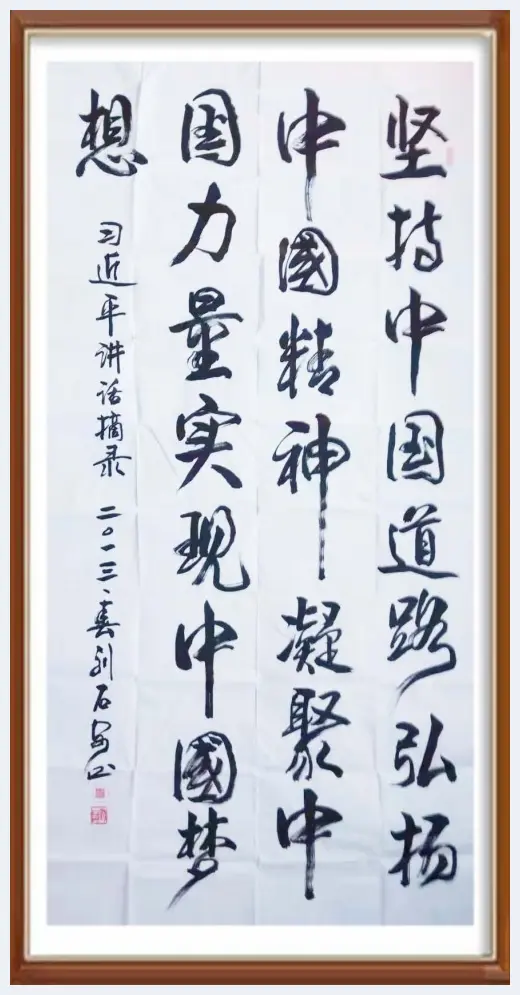 坚持中国道路弘扬
中國精神凝聚中
国力量实现中國梦
想
习近平讲话摘录 二〇一三、春 刘石安书